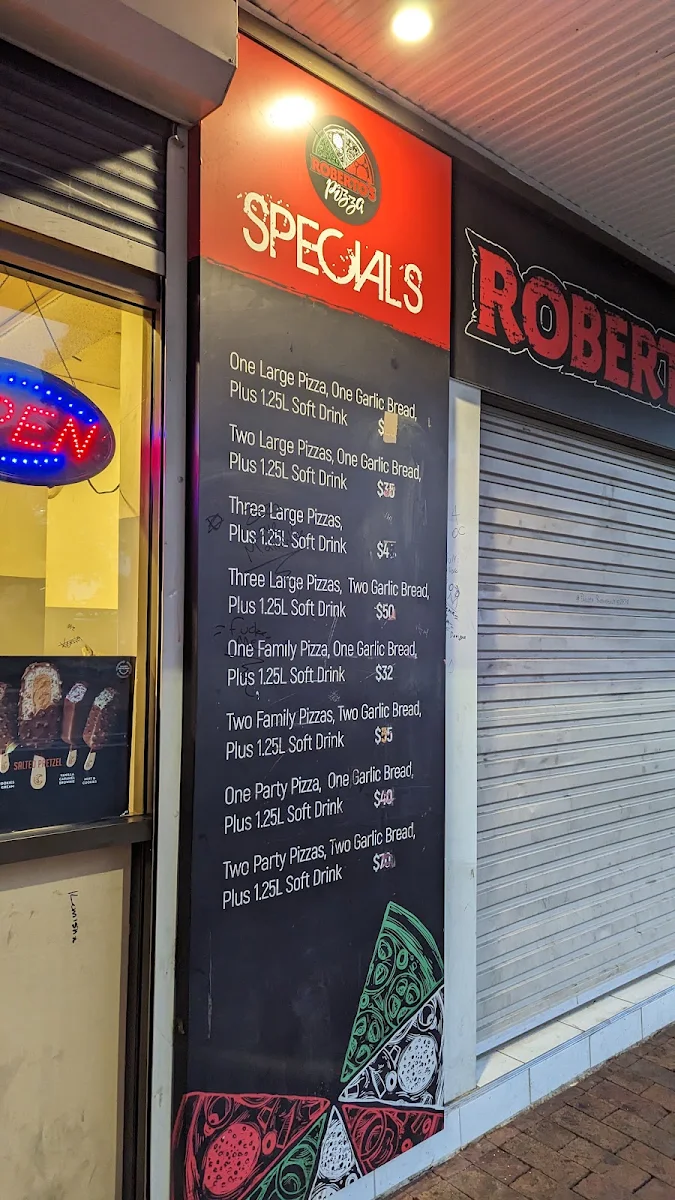 ROBERTO'S
Pizza
SPECIALS
One Large Pizza, One Garlic Bread,
Plus 1.25L Soft Drink $
Two Large Pizzas, One Garlic Bread,
Plus 1.25L Soft Drink $35
Three Large Pizzas,
Plus 1.25L Soft Drink $4
Three Large Pizzas, Two Garlic Bread,
Plus 1.25L Soft Drink $50
One Family Pizza, One Garlic Bread,
Plus 1.25L Soft Drink $32
Two Family Pizzas, Two Garlic Bread,
Plus 1.25L Soft Drink
One Party Pizza, One Garlic Bread,
Plus 1.25L Soft Drink $40
Two Party Pizzas, Two Garlic Bread,
Plus 1.25L Soft Drink $70
ROBERT
PEN
SALTED PRETZEL